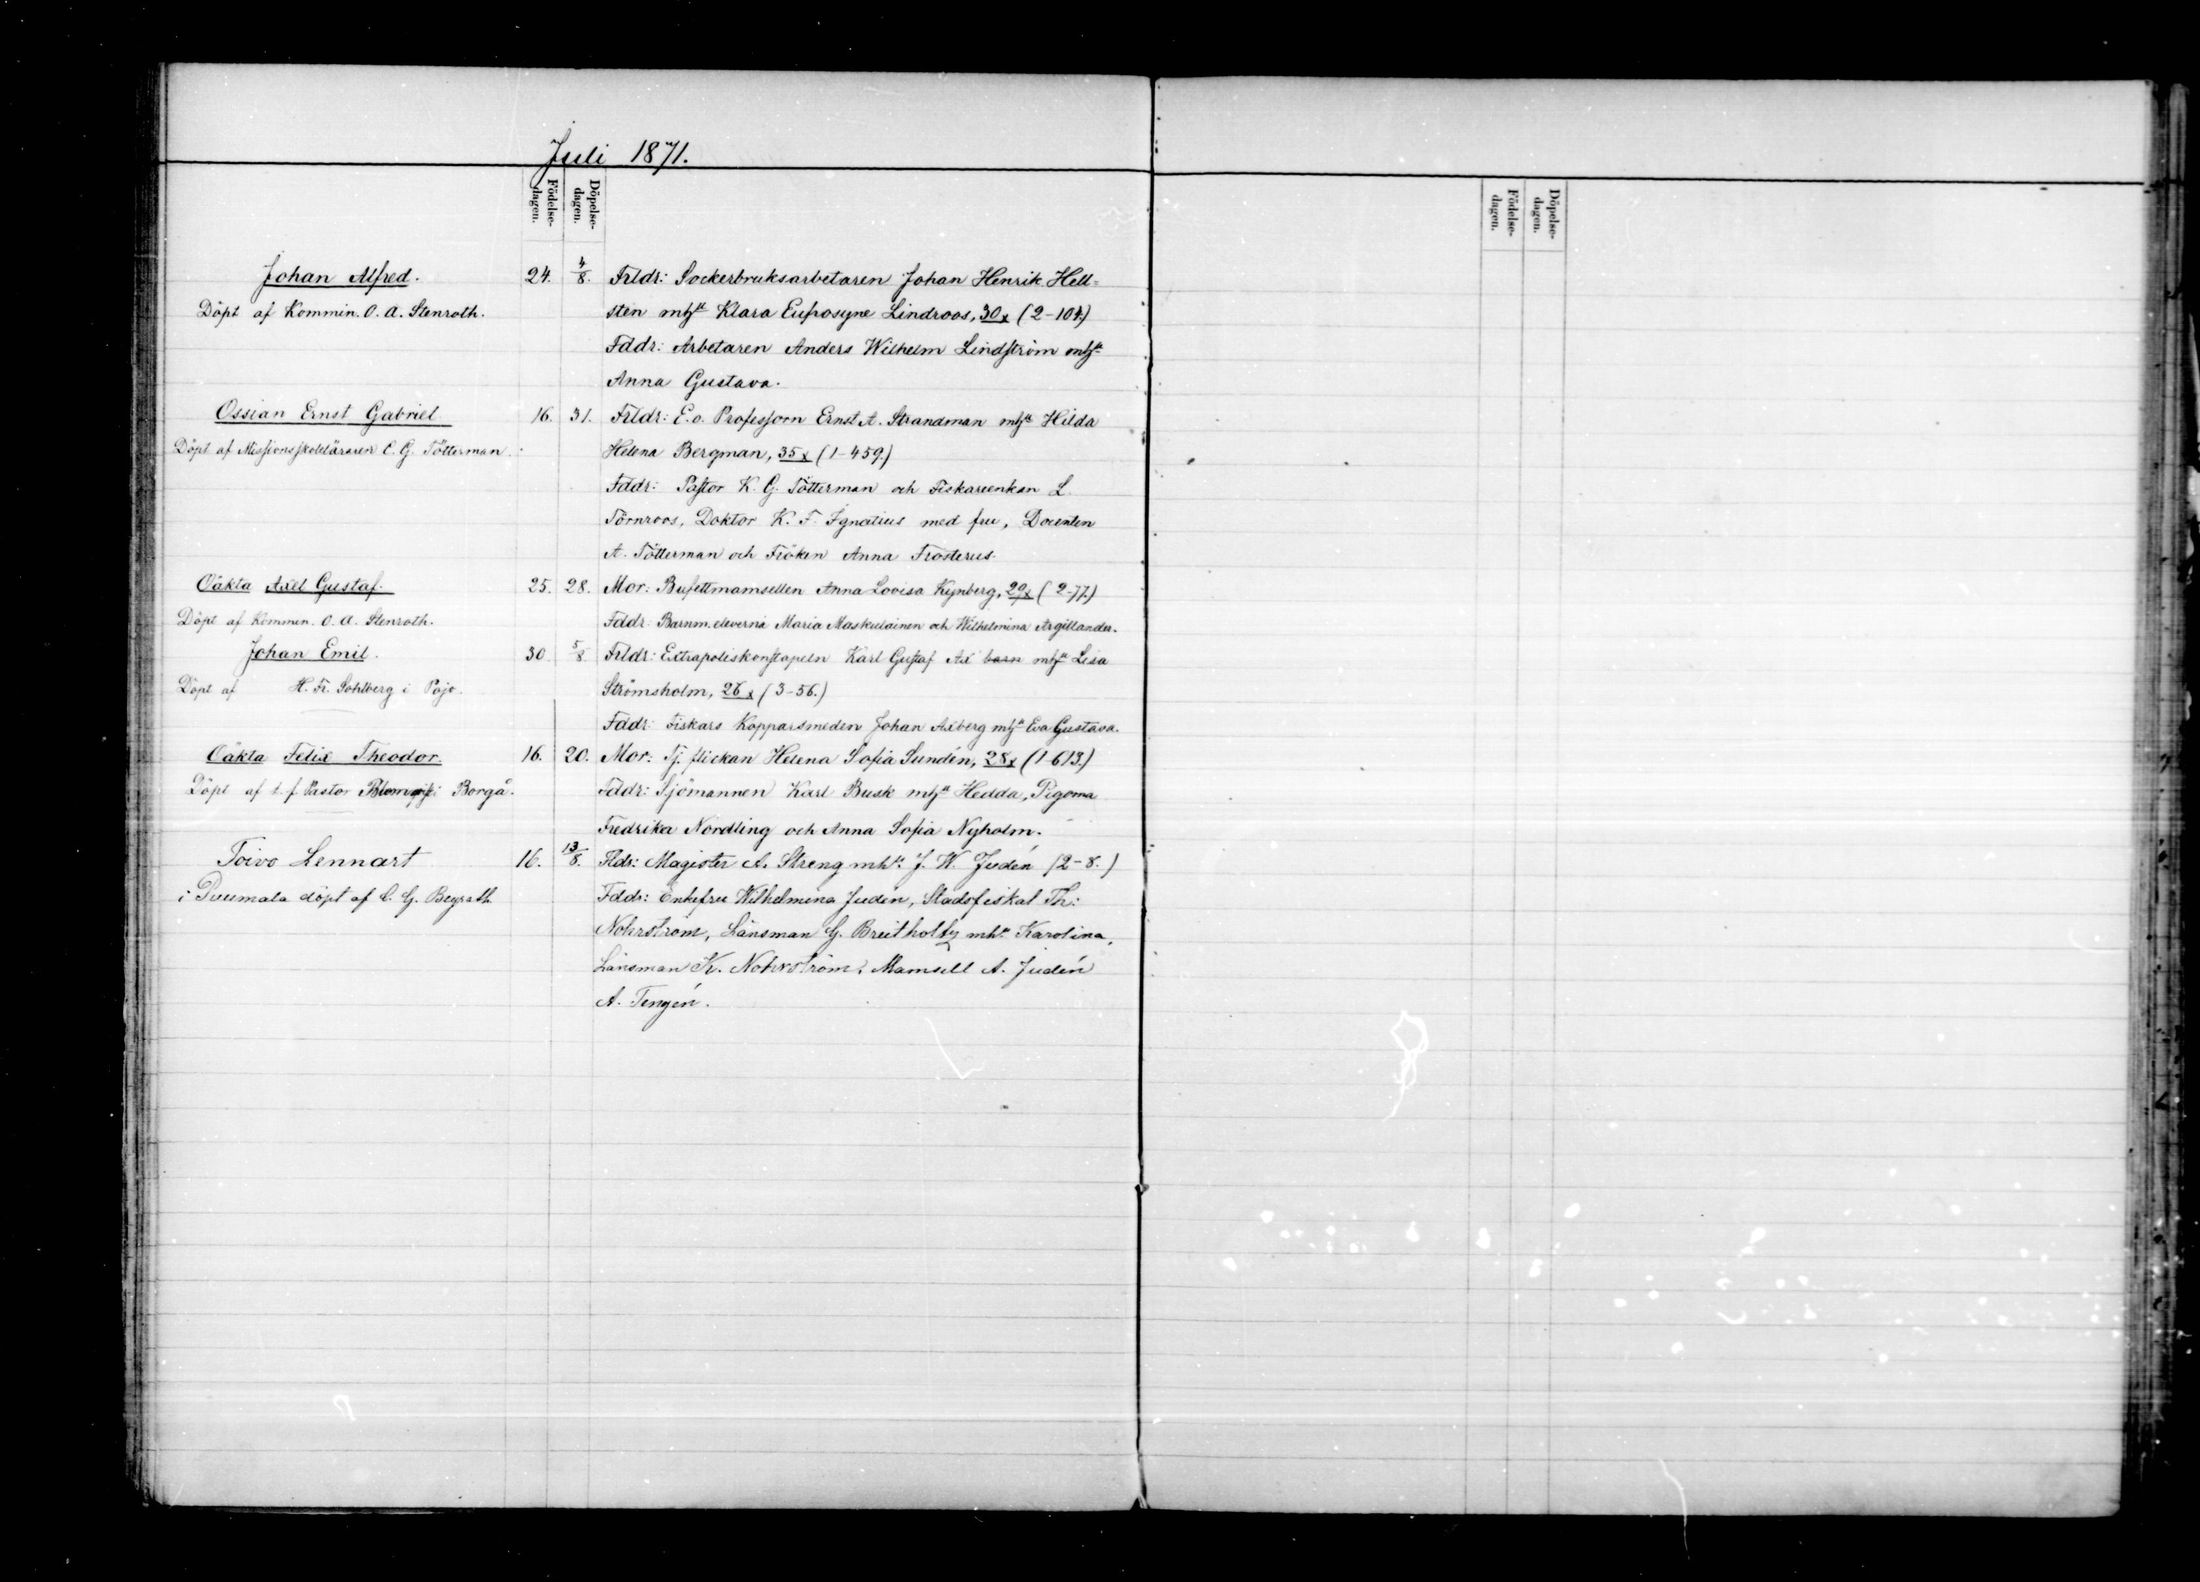 Juli 1871.
Födelse-dagen. Döpelse-dagen. Födelse-dagen. Döpelse-dagen.
Johan Alfred. 24. 4/8. Frldr: Sockerbruksarbetaren Johan Henrik Hell-
Döpt af Kommin. O. A. Stenroth. sten mhst Klara Eufrosyne Lindroos, 30 x (2-104.)
Fddr: Arbetaren Anders Wilhelm Lindström mhst
Anna Gustava.
Ossian Ernst Gabriel 16. 31. Frldr: E. o. Professorn Ernst A. Strandman mhst Hilda
Döpt af Missionsskoleläraren C. G. Tötterman. Helena Bergman, 35 x (1-459.)
Fddr: Pastor K. G. Tötterman och Fiskareenkan L.
Törnroos, Doktor K. F. Ignatius med fru, Docenten
A. Tötterman och Fröken Anna Frosterus.
Oäkta Axel Gustaf. 25. 28. Mor: Bufettmamsellen Anna Lovisa Kynberg, 29 x (2-77.)
Döpt af Kommin. O. A. Stenroth. Fddr: Barnm. eleverna Maria Maskulainen och Wilhelmina Argillander.
Johan Emil. 30 5/8. Frldr: Extrapoliskonstapeln Karl Gustaf Ax barn mhst Lisa
Döpt af H. Fr. Sohlberg i Pojo. Strömsholm, 26 x (3-56.)
Fddr: Fiskars Kopparsmeden Johan Axberg mhst Eva Gustava.
Oäkta Felix Theodor. 16. 20. Mor: Tj. flickan Helena Sofia Sundén, 28 x (1-613.)
Döpt af t. f. Pastor Blomqvist i Borgå. Fddr: Sjömannen Karl Busk mhst Hedda, Pigorna
Fredrika Nordling och Anna Sofia Nyholm.
Toivo Lennart 16. 13/8. Fldr: Magister A. Streng mht. J. W. Judén (2-8.)
i Puumala döpt af C. G. Fddr: Enkefru Wilhelmina Judén, Stadsfiskal Th:
Nohrström, Länsman G. Breitholtz mht. Karolina,
Länsman K. Nohrström, Mamsell A. Judén
A. Tengén.